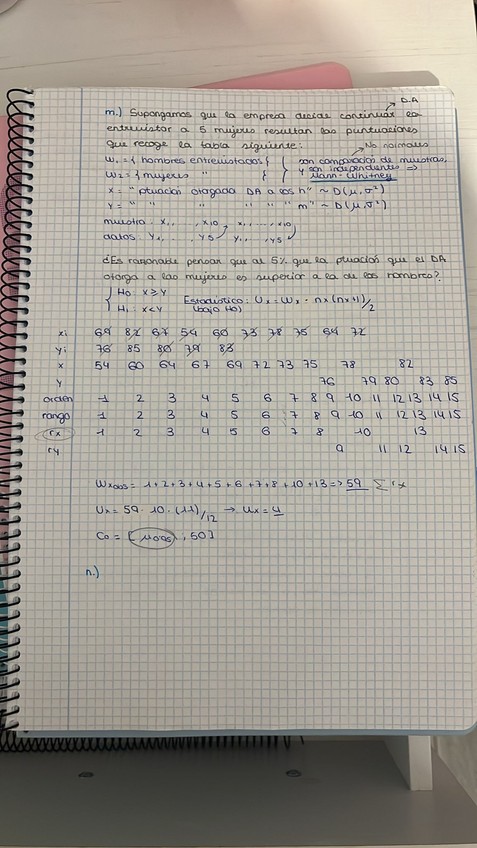 D.A
m.) Supongamos que la empresa decide continuar
entrevistar a 5 mujeres resultan las puntuaciones
que recoge la tabla siguiente: No normales
W1 = { hombres entrevistados } son comparación de muestras,
W2 = { mujeres " } y son independientes ⇒
Mann-Whitney
X = "ptuación otorgada DA a los h" ~ D(μ, σ²)
Y = " " " " " m" ~ D(μ, σ²)
muestra: X1, . . . , X10
datos: Y1, . . . , Y5 y1, . . . , y5
¿Es razonable pensar que al 5% que la ptuación que el DA
otorga a las mujeres es superior a la de los hombres?
H0: X ≥ Y
H1: X < Y Estadístico: Ux = Wx - nx(nx+1)/2
(bajo H0)
xi 69 82 67 54 60 73 78 75 64 72
yi 76 85 80 79 83
x 54 60 64 67 69 72 73 75 78 82
y 76 79 80 83 85
orden 1 2 3 4 5 6 7 8 9 10 11 12 13 14 15
rango 1 2 3 4 5 6 7 8 9 10 11 12 13 14 15
rx 1 2 3 4 5 6 7 8 10 13
ry 9 11 12 14 15
Wxobs = 1+2+3+4+5+6+7+8+10+13 => 59 Σ rx
Ux = 59 - 10 · (11)/12 → Ux = 4
C0 = [ μ0'05 , 50]
n.)